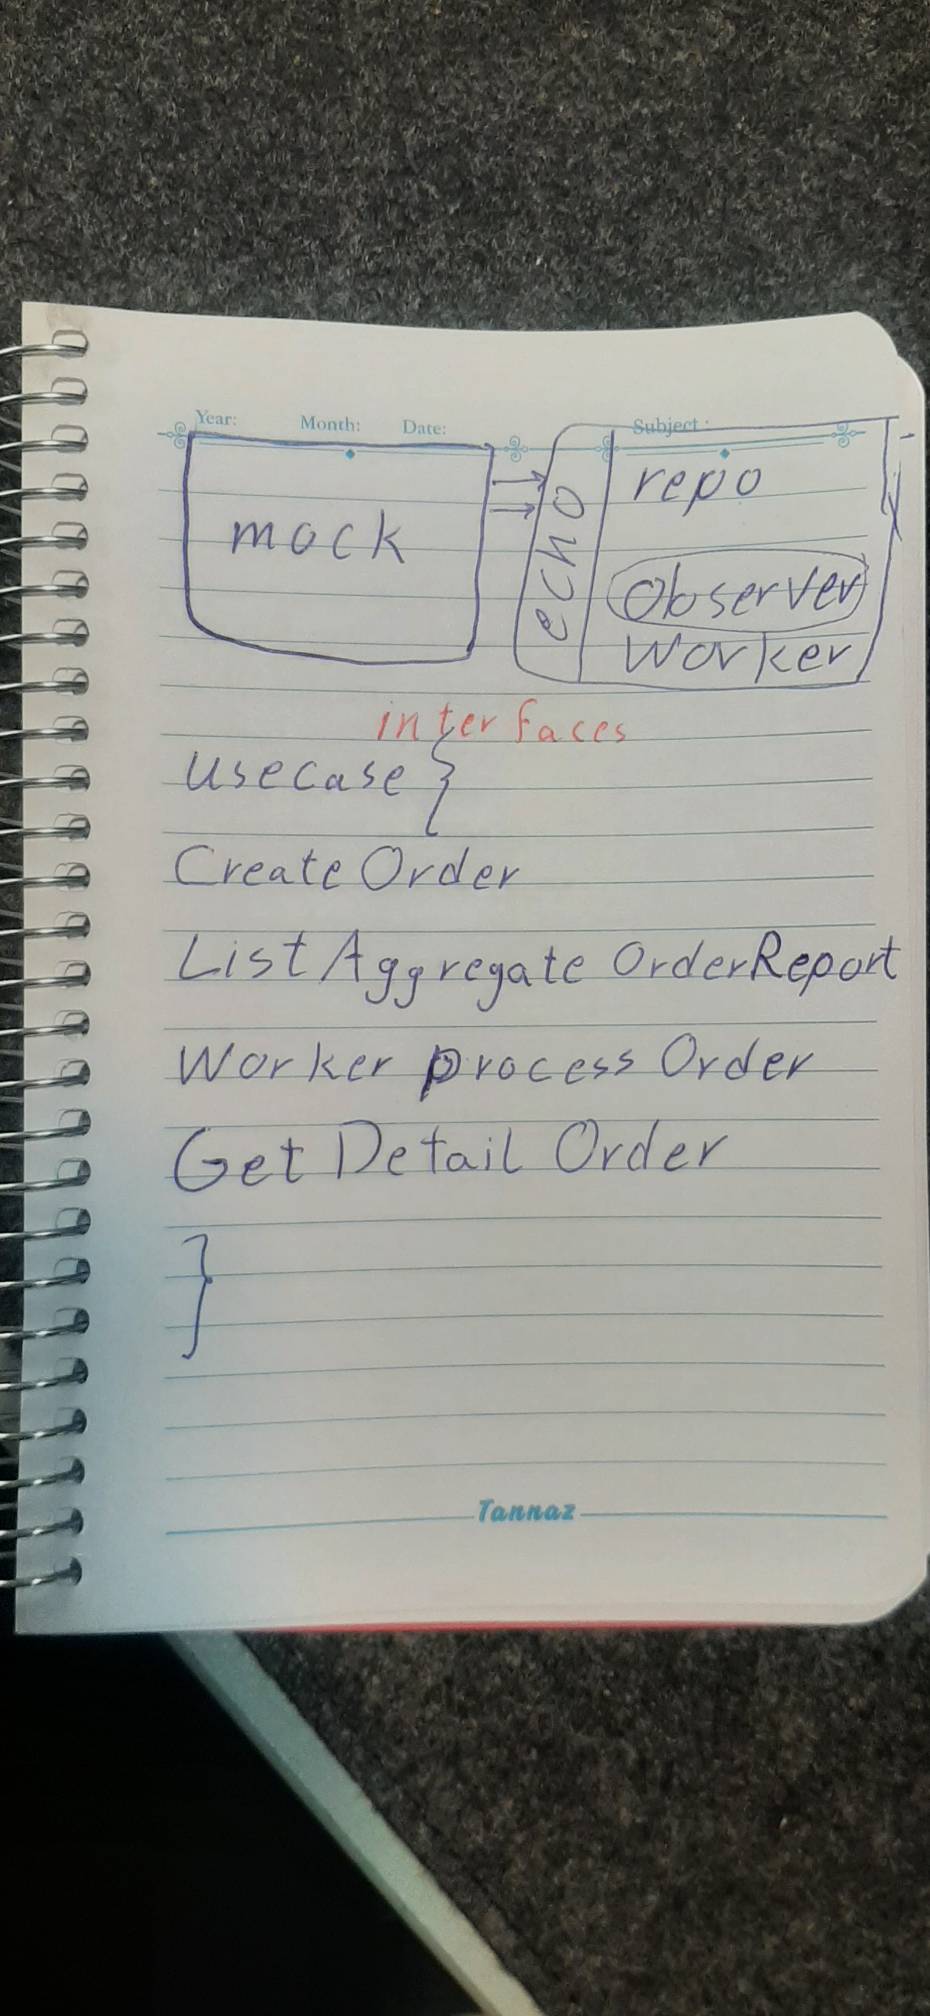 Year: Month: Date: Subject:
mock
echo
repo
observer
worker
interfaces
usecase }
Create Order
List Aggregate OrderReport
Worker process Order
Get Detail Order
}
Tannaz